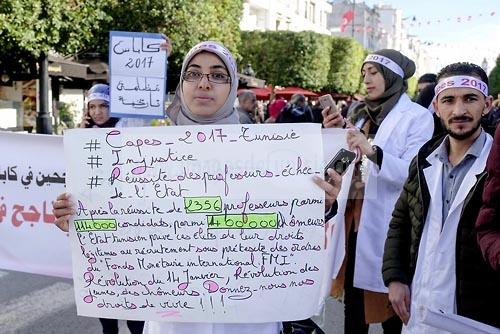 كاباس
2017
مظلمة
تاريخية
2017
# Capes _ 2017 _ Tunisie
# Injustice
# Réussite_des_professeurs_échec_
de_l'Etat
Après la réussite de 2356 professeurs parmi
114000 candidats, parmi 400000 chômeurs
l'Etat tunisien prive ces élites de leur droits
légitimes au recrutement sous prétexte des ordres
du Fonds Monétaire international "FMI".
Révolution du 14 Janvier, Révolution des
jeunes, des chômeurs. Donnez_nous nos
droits de vivre !!!
2017
حين في كاباس
ناجح في